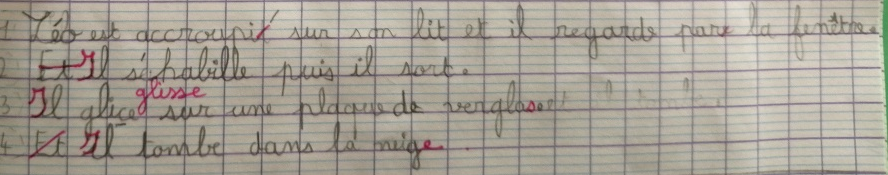 1 Léo est accroupit sur son lit et il regarde pare la fenêtre.
2 Et Il s'habille puis il sort.
glisse
3 Il glice sur une plaque de verglas
4 Et Il tombe dans la neige.